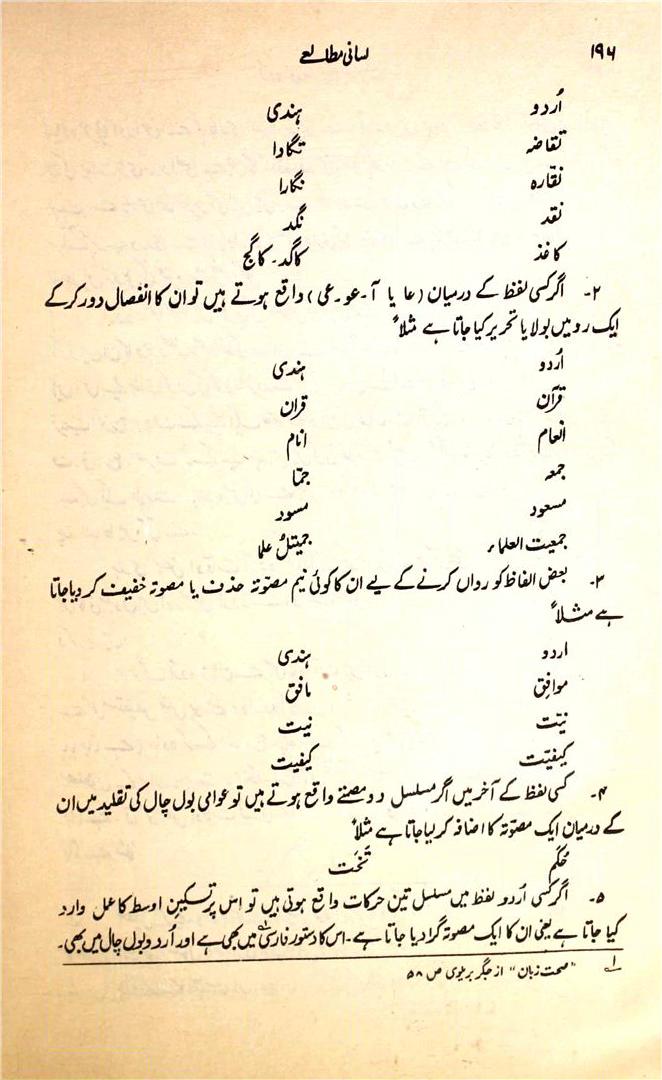 ۱۹۶ لسانی مطالعے
اُردو ہندی
تقاضہ تگادا
نقارہ نگارا
نقد نگد
کاغذ کاگد۔ کاگج
۲۔ اگر کسی لفظ کے درمیان (عا یا آ۔عو۔عی) واقع ہوتے ہیں تو ان کا انفصال دور کرکے
ایک رو میں بولا یا تحریر کیا جاتا ہے مثلاً
اُردو ہندی
قرآن قران
انعام انام
جمعہ جمّا
مسعود مسود
جمعیت العلماء جمیتلُ علما
۳۔ بعض الفاظ کو رواں کرنے کے لیے ان کا کوئی نیم مصوّتہ حذف یا مصوتہ خفیف کردیا جاتا
ہے مثلاً
اردو ہندی
موافِق مافق
نیّت نیت
کیفیّت کیفیت
۴۔ کسی لفظ کے آخر میں اگر مسلسل دو مصمتے واقع ہوتے ہیں تو عوامی بول چال کی تقلید میں ان
کے درمیان ایک مصوّتہ کا اضافہ کرلیا جاتا ہے مثلاً
حُکَم تَخَت
۵۔ اگر کسی اُردو لفظ میں مسلسل تین حرکات واقع ہوتی ہیں تو اس پر تسکینِ اوسط کا عمل وارد
کیا جاتا ہے یعنی ان کا ایک مصوتہ گرادیا جاتا ہے۔ اس کا دستور فارسی۱ میں بھی ہے اور اُردو بول چال میں بھی۔
۱؎ "صحت زبان" از جگر بریلوی ص ۵۸